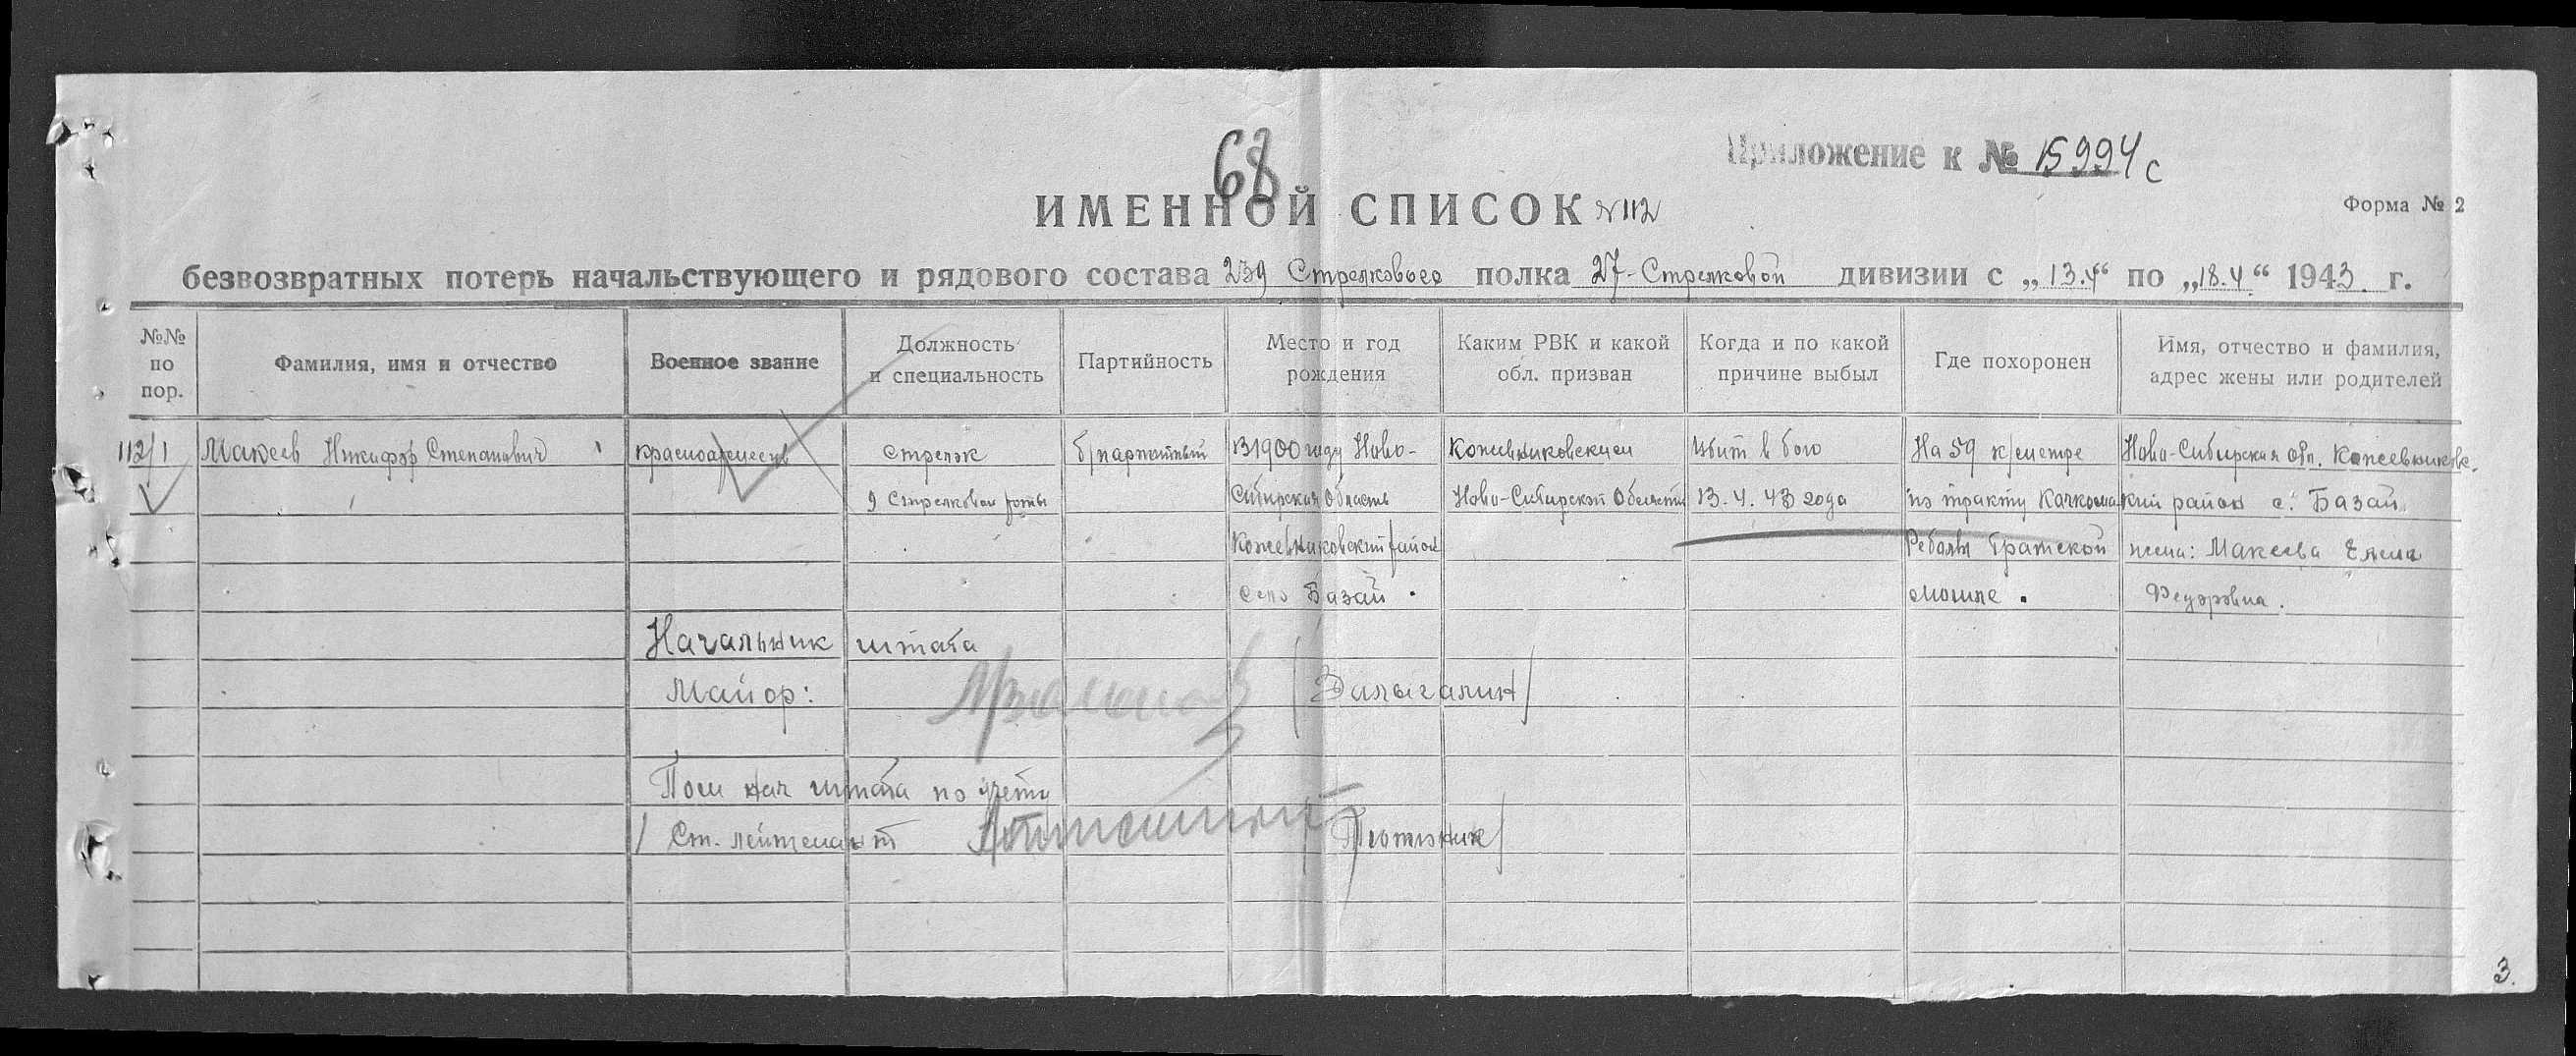 68
Приложение к № 15994с
ИМЕННОЙ СПИСОК №112
Форма № 2
безвозвратных потерь начальствующего и рядового состава 239 Стрелкового полка 27-Стрелковой дивизии с „13.4“ по „18.4“ 1943 г.
№№ по пор.
Фамилия, имя и отчество
Военное звание
Должность и специальность
Партийность
Место и год рождения
Каким РВК и какой обл. призван
Когда и по какой причине выбыл
Где похоронен
Имя, отчество и фамилия, адрес жены или родителей
112/1 Макеев Никифор Степанович красноармеец стрелок б/партитный В 1900 году Ново- Кожевниковским Убит в бою На 59 к/метре Ново-Сибирская обл. Кожевниковс-
9 Стрелковой роты Сибирская Область Ново-Сибирской Области 13.4.43 года по тракту Кочкома кий район с. Базай
Кожевниковский район Реболы братской жена: Макеева
село Базай могиле. Федоровна.
Начальник штаба
Майор:
Пом нач штаба по учету
/ Ст. лейтенант /Плотник/
3.